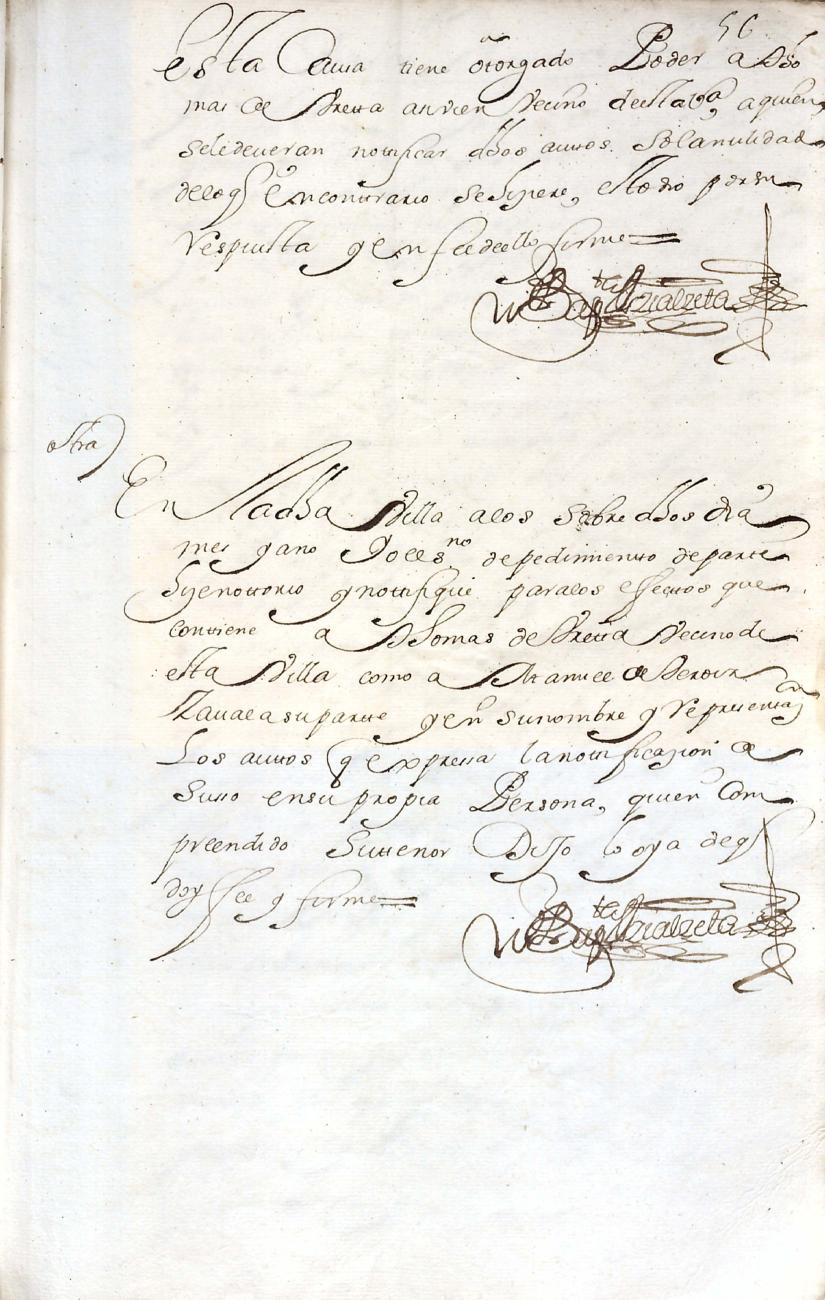 56
esta Causa tiene otorgado Poder a Tho
mas de Areta asi bien Vecino de esta Va, a quien
sele deveran nottificar dhos auttos. So la nulidad
de lo q en conttrario se hiziere, esto dio por su
respuesta y en fee de ello firme=
Baptta de Izialzeta
ottra)
En la dha Villa a los sobre dhos dia
mes y año Yo el Esno de pedimientto de partte
hize nottorio y nottifique para los effecttos que
conttiene a Thomas de Aretta Vecino de
esta Villa como a Manuel de
Zavala su partte y en su nombre y representtaon
Los auttos q expressa la nottificazion de
suso en su propia Persona, quien Com
preendido Su ttenor Dijo lo oya de q
doy ffee y firme=
Baptta de Izialzeta